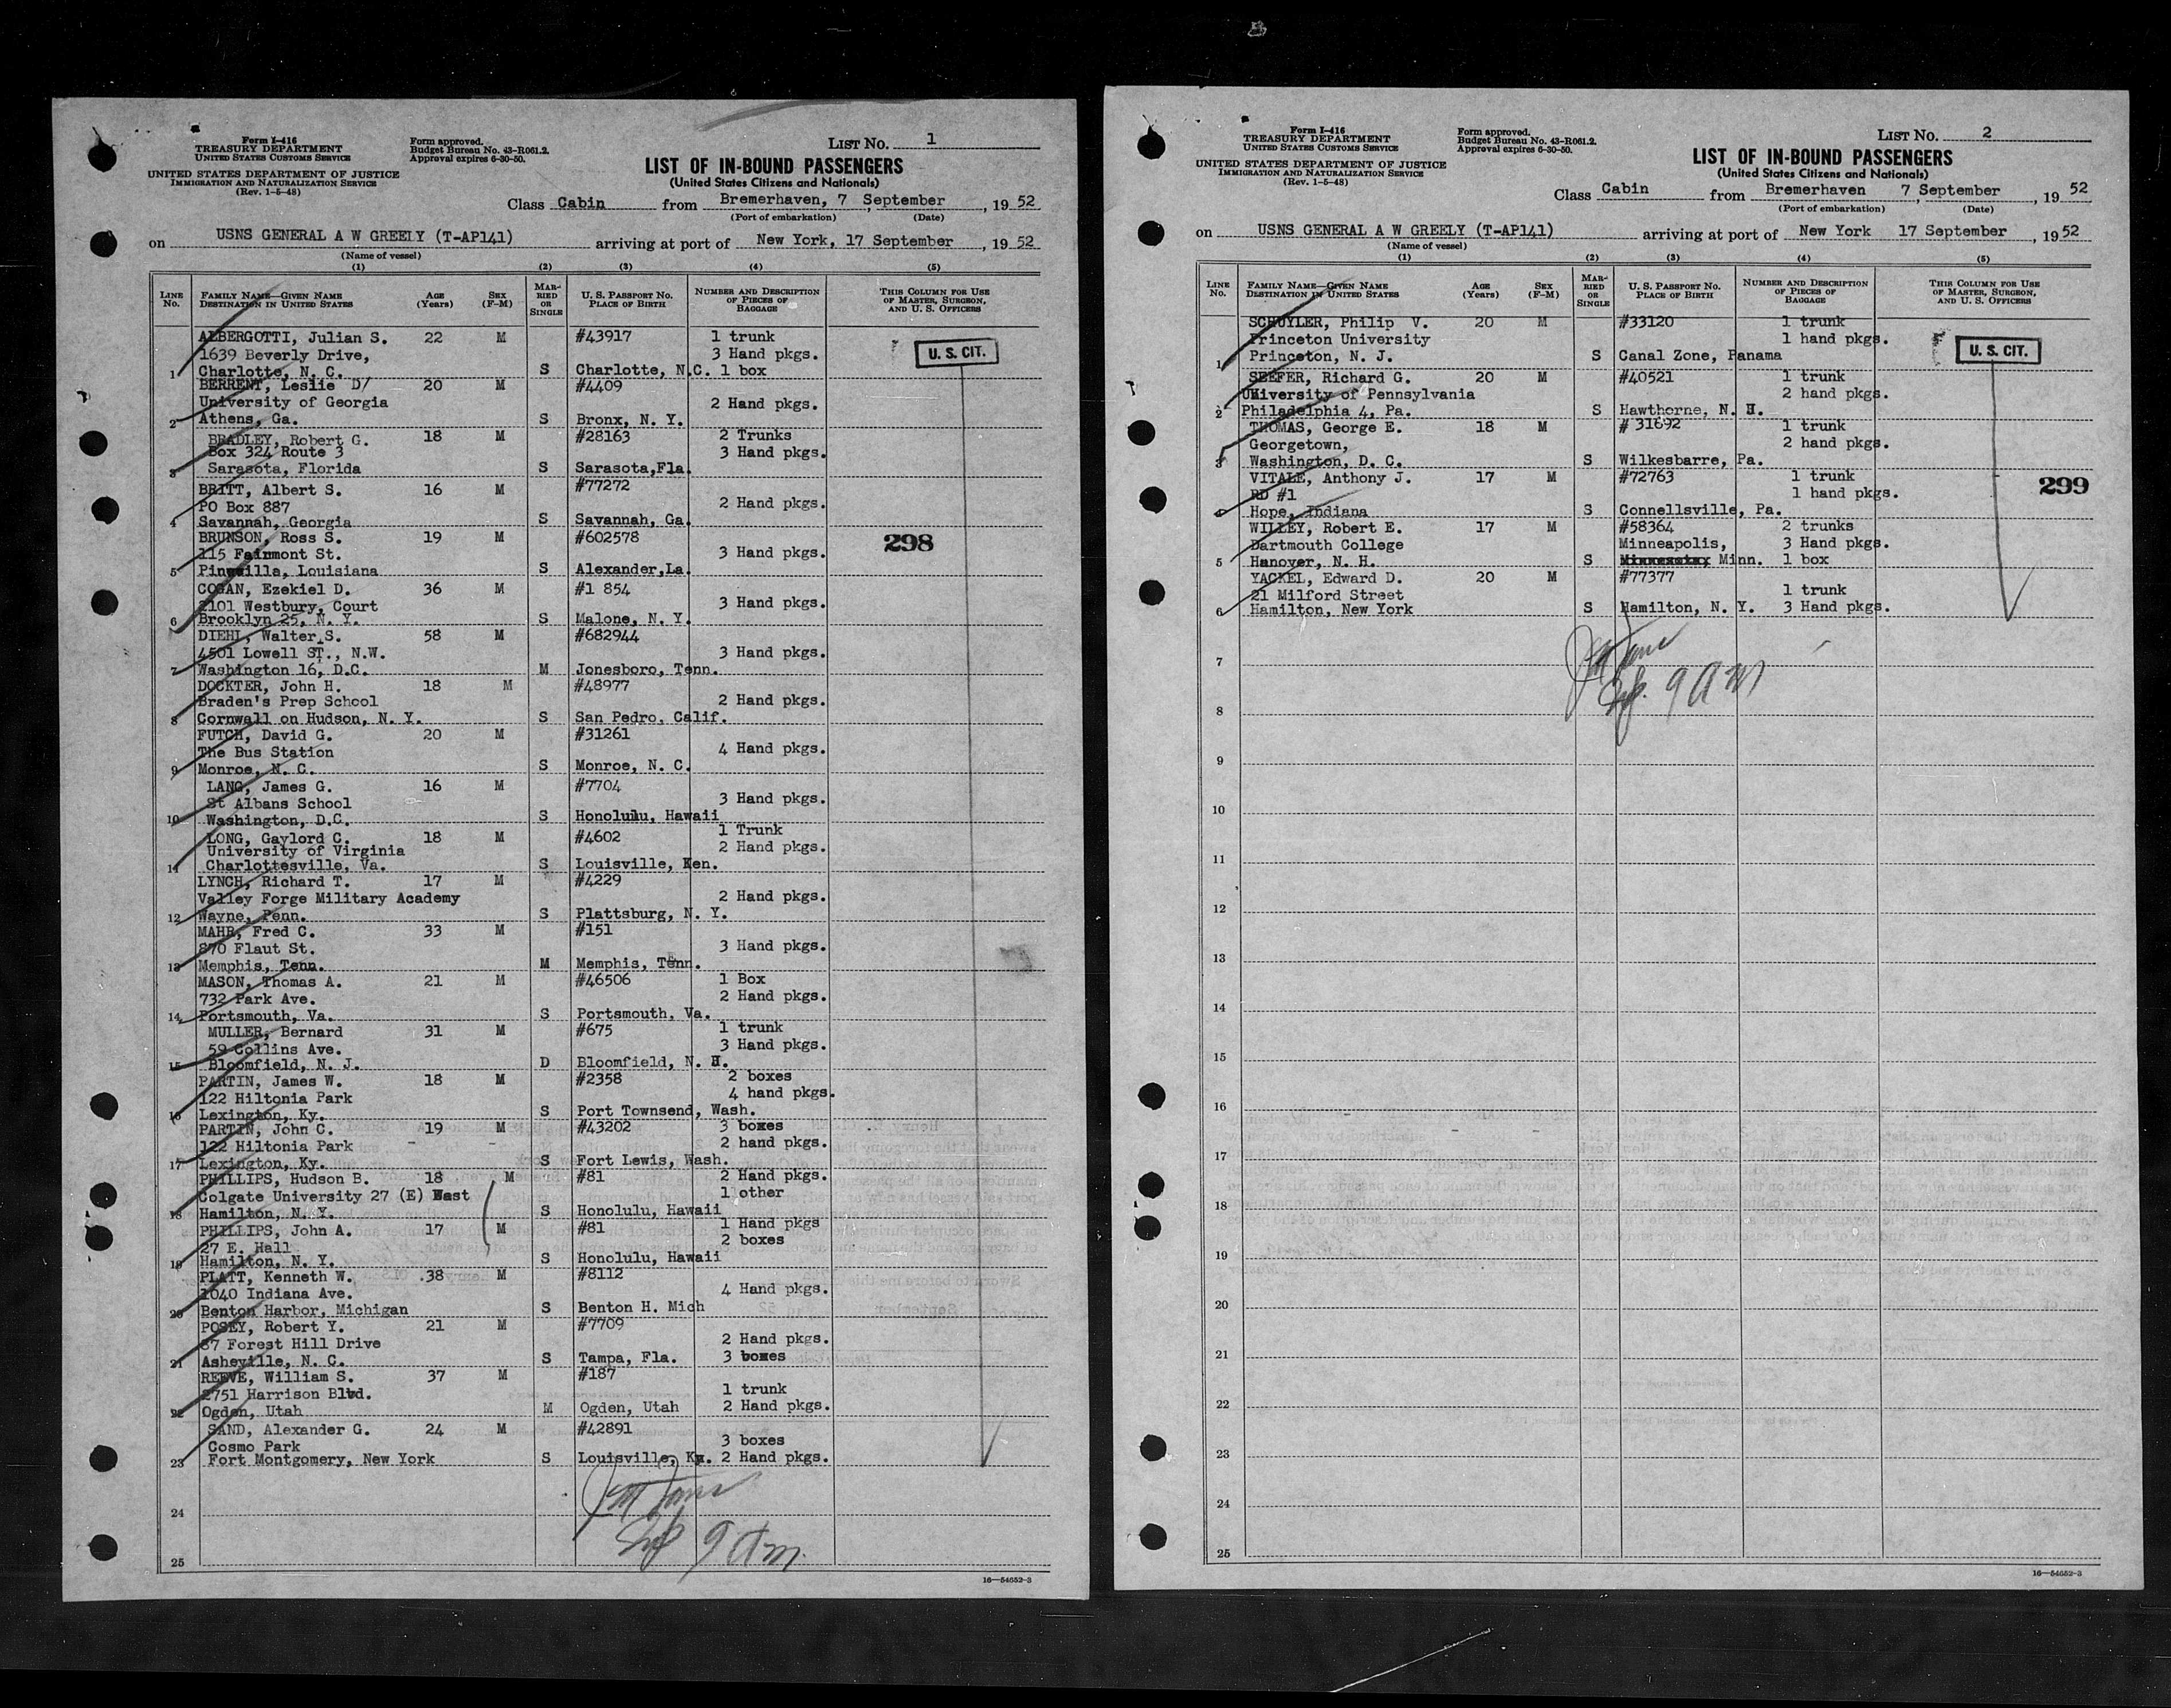 Form I-416
TREASURY DEPARTMENT
UNITED STATES CUSTOMS SERVICE
UNITED STATES DEPARTMENT OF JUSTICE
IMMIGRATION AND NATURALIZATION SERVICE
(Rev. 1-5-48)
Form approved.
Budget Bureau No. 43-R061.2.
Approval expires 6-30-50.
LIST No. 1
LIST OF IN-BOUND PASSENGERS
(United States Citizens and Nationals)
Class Cabin from Bremerhaven, 7 September, 1952
(Port of embarkation) (Date)
on USNS GENERAL A W GREELY (T-AP141) arriving at port of New York, 17 September, 1952
(Name of vessel)
(1) (2) (3) (4) (5)
LINE No. FAMILY NAME—GIVEN NAME DESTINATION IN UNITED STATES AGE (Years) SEX (F-M) MARRIED OR SINGLE U. S. PASSPORT No. PLACE OF BIRTH NUMBER AND DESCRIPTION OF PIECES OF BAGGAGE THIS COLUMN FOR USE OF MASTER, SURGEON, AND U. S. OFFICERS
ALBERGOTTI, Julian S. 22 M #43917 1 trunk
1639 Beverly Drive, 3 Hand pkgs. U. S. CIT.
1 Charlotte, N. C. S Charlotte, N.C. 1 box
BERRENT, Leslie D/ 20 M #4409
University of Georgia 2 Hand pkgs.
2 Athens, Ga. S Bronx, N. Y.
BRADLEY, Robert G. 18 M #28163 2 Trunks
Box 324 Route 3 3 Hand pkgs.
3 Sarasota, Florida S Sarasota,Fla.
BRITT, Albert S. 16 M #77272
PO Box 887 2 Hand pkgs.
4 Savannah, Georgia S Savannah, Ga.
BRUNSON, Ross S. 19 M #602578
115 Fairmont St. 3 Hand pkgs. 298
5 Pineville, Louisiana S Alexander,La.
COGAN, Ezekiel D. 36 M #1 854
2101 Westbury, Court 3 Hand pkgs.
6 Brooklyn 25, N. Y. S Malone, N. Y.
DIEHL, Walter S. 58 M #682944
4501 Lowell ST., N.W. 3 Hand pkgs.
7 Washington 16, D.C. M Jonesboro, Tenn.
DOCKTER, John H. 18 M #48977
Braden's Prep School 2 Hand pkgs.
8 Cornwall on Hudson, N. Y. S San Pedro, Calif.
FUTCH, David G. 20 M #31261
The Bus Station 4 Hand pkgs.
9 Monroe, N. C. S Monroe, N. C.
LANG, James G. 16 M #7704
St Albans School 3 Hand pkgs.
10 Washington, D.C. S Honolulu, Hawaii
LONG, Gaylord C. 18 M #4602 1 Trunk
University of Virginia 2 Hand pkgs.
11 Charlottesville, Va. S Louisville, Ken.
LYNCH, Richard T. 17 M #4229
Valley Forge Military Academy 2 Hand pkgs.
12 Wayne, Penn. S Plattsburg, N. Y.
MAHR, Fred C. 33 M #151
870 Flaut St. 3 Hand pkgs.
13 Memphis, Tenn. M Memphis, Tenn.
MASON, Thomas A. 21 M #46506 1 Box
732 Park Ave. 2 Hand pkgs.
14 Portsmouth, Va. S Portsmouth, Va.
MULLER, Bernard 31 M #675 1 trunk
59 Collins Ave. 3 Hand pkgs.
15 Bloomfield, N. J. D Bloomfield, N. J.
PARTIN, James W. 18 M #2358 2 boxes
122 Hiltonia Park 4 hand pkgs.
16 Lexington, Ky. S Port Townsend, Wash.
PARTIN, John C. 19 M #43202 3 boxes
122 Hiltonia Park 2 hand pkgs.
17 Lexington, Ky. S Fort Lewis, Wash.
PHILLIPS, Hudson B. 18 M #81 2 Hand pkgs.
Colgate University 27 (E) East 1 other
18 Hamilton, N. Y. S Honolulu, Hawaii
PHILLIPS, John A. 17 M #81 1 Hand pkgs
27 E. Hall 2 boxes
19 Hamilton, N. Y. S Honolulu, Hawaii
PLATT, Kenneth W. .38 M #8112
1040 Indiana Ave. 4 Hand pkgs.
20 Benton Harbor, Michigan S Benton H. Mich
POSEY, Robert Y. 21 M #7709
87 Forest Hill Drive 2 Hand pkgs.
21 Asheville, N. C. S Tampa, Fla. 3 boxes
REEVE, William S. 37 M #187
2751 Harrison Blvd. 1 trunk
22 Ogden, Utah M Ogden, Utah 2 Hand pkgs.
SAND, Alexander G. 24 M #42891
Cosmo Park 3 boxes
23 Fort Montgomery, New York S Louisville, Ky. 2 Hand pkgs.
24
9 AM
25
16—54652-3
Form I-416
TREASURY DEPARTMENT
UNITED STATES CUSTOMS SERVICE
UNITED STATES DEPARTMENT OF JUSTICE
IMMIGRATION AND NATURALIZATION SERVICE
(Rev. 1-5-48)
Form approved.
Budget Bureau No. 43-R061.2.
Approval expires 6-30-50.
LIST No. 2
LIST OF IN-BOUND PASSENGERS
(United States Citizens and Nationals)
Class Cabin from Bremerhaven 7 September, 1952
(Port of embarkation) (Date)
on USNS GENERAL A W GREELY (T-AP141) arriving at port of New York 17 September, 1952
(Name of vessel)
(1) (2) (3) (4) (5)
LINE No. FAMILY NAME—GIVEN NAME DESTINATION IN UNITED STATES AGE (Years) SEX (F-M) MARRIED OR SINGLE U. S. PASSPORT No. PLACE OF BIRTH NUMBER AND DESCRIPTION OF PIECES OF BAGGAGE THIS COLUMN FOR USE OF MASTER, SURGEON, AND U. S. OFFICERS
SCHUYLER, Philip V. 20 M #33120 1 trunk
Princeton University 1 hand pkgs.
1 Princeton, N. J. S Canal Zone, Panama U. S. CIT.
SEEFER, Richard G. 20 M #40521 1 trunk
University of Pennsylvania 2 hand pkgs.
2 Philadelphia 4, Pa. S Hawthorne, N. H.
THOMAS, George E. 18 M # 31692 1 trunk
Georgetown, 2 hand pkgs.
3 Washington, D. C. S Wilkesbarre, Pa.
VITALE, Anthony J. 17 M #72763 1 trunk
RD #1 1 hand pkgs. 299
4 Hope, Indiana S Connellsville, Pa.
WILLEY, Robert E. 17 M #58364 2 trunks
Dartmouth College Minneapolis, 3 Hand pkgs.
5 Hanover, N. H. S Minn. 1 box
YACKEL, Edward D. 20 M #77377
21 Milford Street 1 trunk
6 Hamilton, New York S Hamilton, N. Y. 3 Hand pkgs.
7
9 AM
8
9
10
11
12
13
14
15
16
17
18
19
20
21
22
23
24
25
16—54652-3